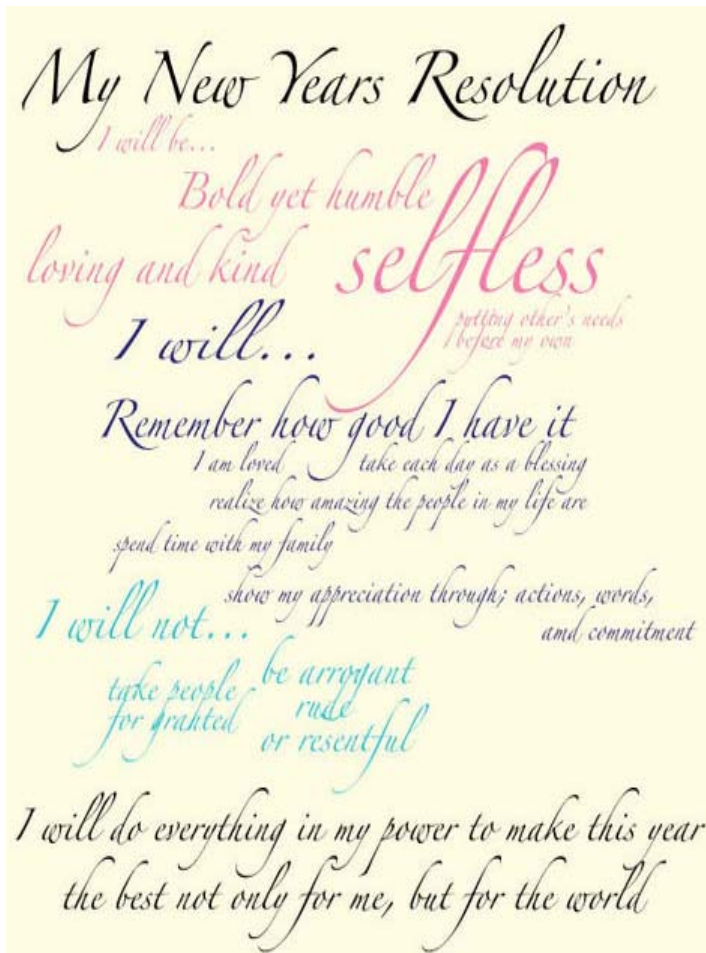 My New Years Resolution
I will be...
Bold yet humble
loving and kind
selfless
putting other's needs
before my own
I will...
Remember how good I have it
I am loved
take each day as a blessing
realize how amazing the people in my life are
spend time with my family
show my appreciation through; actions, words,
amd commitment
I will not...
take people
for granted
be arrogant
rude
or resentful
I will do everything in my power to make this year
the best not only for me, but for the world